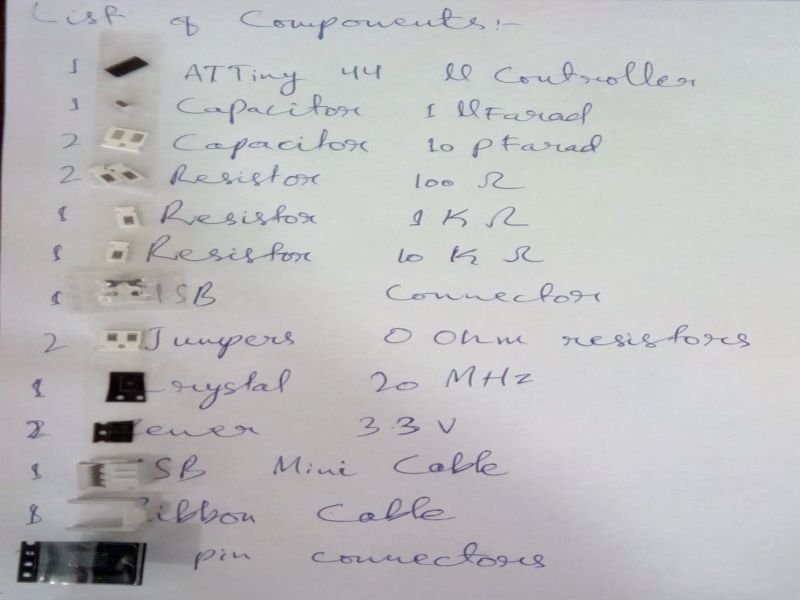 List of Components:-
1 ATTiny 44 µ Controller
1 Capacitor 1 µFarad
2 Capacitor 10 pFarad
2 Resistor 100 Ω
1 Resistor 1 K Ω
1 Resistor 10 K Ω
1 USB Connector
2 Jumpers 0 Ohm resistors
1 Crystal 20 MHz
2 Zener 3.3 V
1 USB Mini Cable
1 Ribbon Cable
pin connectors